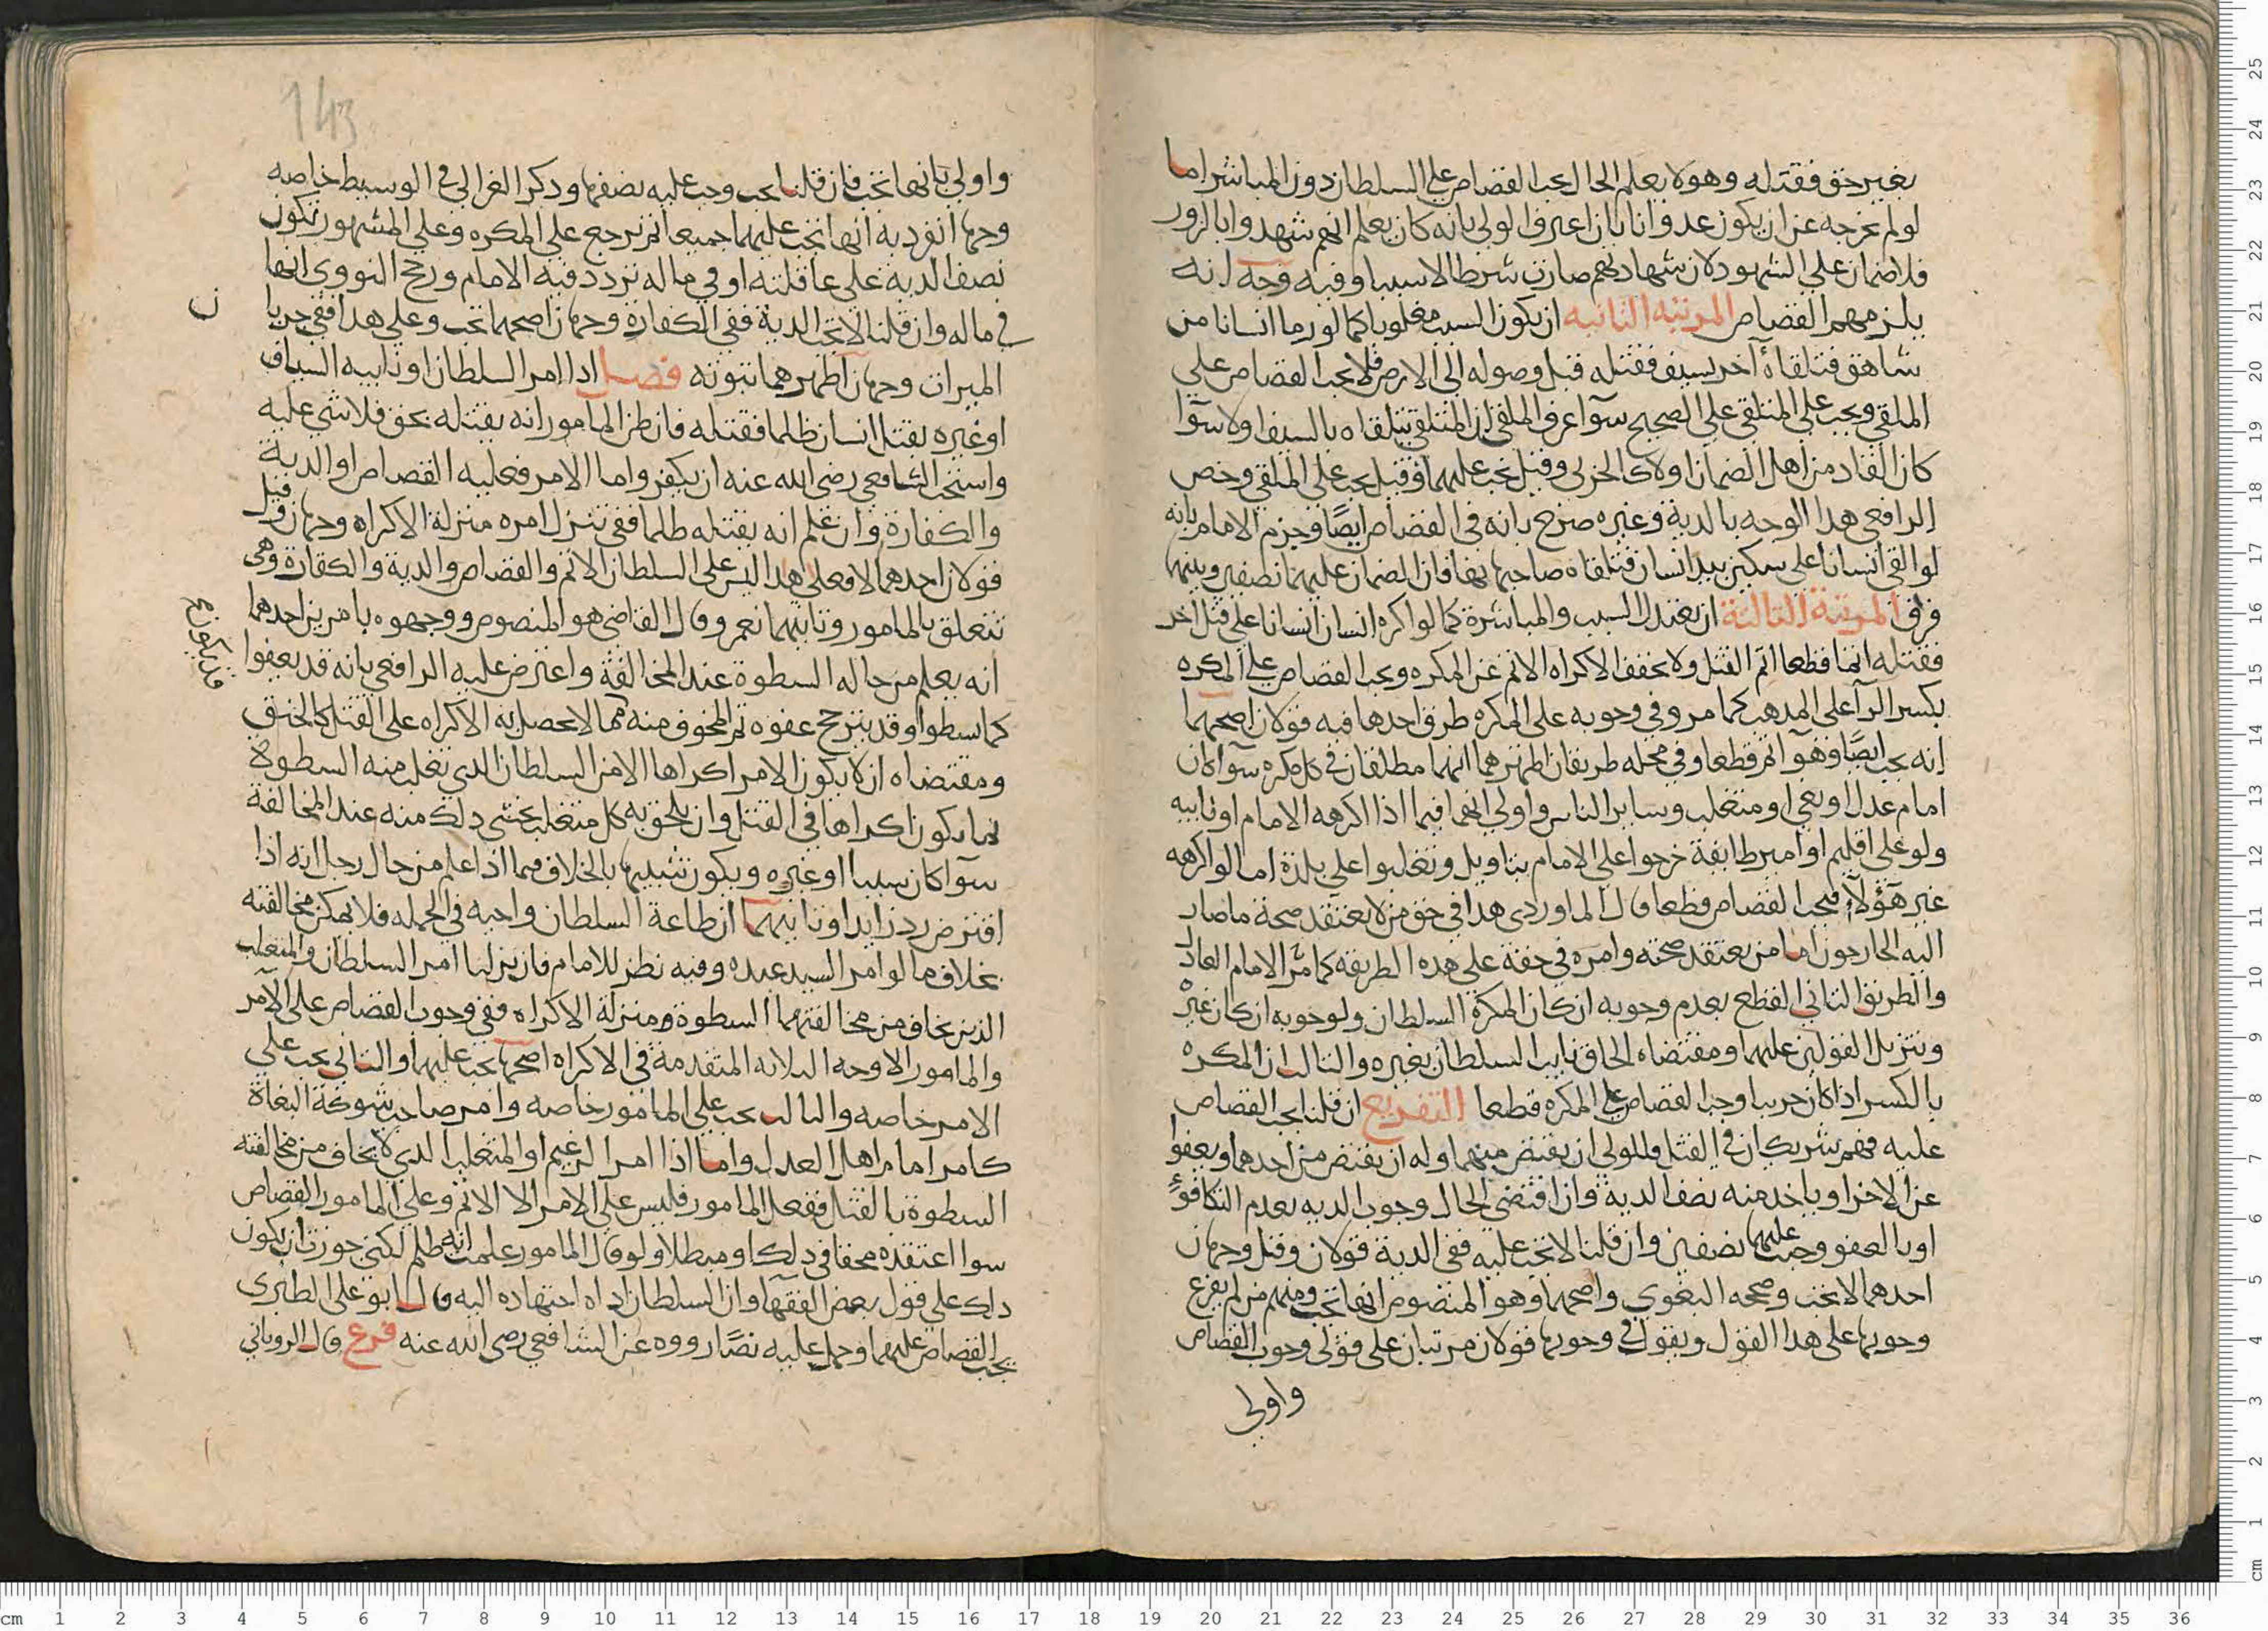 بغير حق فقتله وهو لا يعلم الحال يجب القصاص على السلطان دون المباشر اما
لو لم نخرجه عن ان يكون عدوانا بان اعترف الولي بانه كان يعلم انهم شهدوا بالزور
فلا ضمان على الشهود لان شهادتهم صارت شرطا لا سببا وفيه وجه انه
يلزمهم القصاص المرتبه الثانيه ان يكون السبب مغلوبا كما لو رما انسانا من
شاهق فتلقاه آخر بسيف فقتله قبل وصوله الى الارض فلا يجب القصاص على
الملقي ويجب على المتلقي على الصحيح سوآ عرف الملقي ان المتلقي يتلقاه بالسيف او لا سوآ
كان القاد من اهل الضمان او لا كالحربي وقيل يجب عليهما وقيل يجب على الملقي وخص
الرافعي هدا الوجه بالدية وغيره صرح بانه في القصاص ايضًا وجزم الامام بانه
لو القى انسانا على سكين بيد انسان فتلقاه صاحبها بها فان الضمان عليهما نصفين وبينهما
فرق المرتبة الثالثة ان يعتدل السبب والمباشرة كما لو اكره انسان انسانا على قتل اخر
فقتله اثما قطعا اثم القتل ولا يخفف الاكراه الاثم عن المكره ويجب القصاص على المكره
بكسر الرآ على المدهب كما مر وفي وجوبه على المكره طرق احدها فيه قولان اصحهما
انه يجب ايضًا وهو آثم قطعا وفي محله طريقان اظهرهما انهما مطلقان في كل مكره سوآ كان
امام عدل او بغي او متغلب وساير الناس واولى انهما فيما اذا اكرهه الامام او نايبه
ولو على اقليم او امير طايفة خرجوا على الامام بتاويل وتغلبوا على بلدة اما لو اكرهه
غير هؤلآ فيجب القصاص قطعا قال الماوردى هدا في حق من لا يعتقد صحة ما صار
اليه الخارجون اما من يعتقد صحته وامره في حقه على هده الطريقه كما مر الامام العادل
والطريق الثاني القطع بعدم وجوبه ان كان المكره السلطان ولوجوبه ان كان غيره
وتنزيل القولين عليهما ومقتضاه الحاق نايب السلطان بغيره والثالث ان المكره
بالكسر اذا كان حربيا وجب القصاص على المكره قطعا التفريع ان قلنا يجب القصاص
عليه فهم شريكان في القتل فللولي ان يقتص منهما وله ان يقتص من احدهما ويعفوا
عن الاخر او ياخد منه نصف الدية وان اقتضى الحال وجوب الديه بعدم التكافؤ
او بالعفو وجبت عليهما نصفين وان قلنا لا يجب عليه ففي الدية قولان وقيل وجهان
احدهما لا تجب وصححه البغوي واصحهما وهو المنصوص انها تجب ومنهم من لم يفرع
وجوبها على هدا القول ويقول في وجوبها قولان مرتبان على قولى وجوب القصاص
واولى
143
واولى بانها تجب فان قلنا تجب وجب عليه نصفها ودكر الغزالي في الوسيط خاصه
وجها انفرد به انها تجب عليهما جميعا ثم نرجع على المكره وعلى المشهور تكون
نصف الدية على عاقلته او في ماله تردد فيه الامام ورجح النووي انها
في ماله وان قلنا لا تجب الدية ففي الكفارة وجهان اصحهما تجب وعلى هدا ففي حرمان
الميراث وجهان اظهرهما ثبوته فصل ادا امر السلطان او نايبه السياف
او غيره بقتل انسان ظلما فقتله فان ظن المامور انه يقتله بحق فلا شي عليه
واستحب الشافعي رضى الله عنه ان يكفر واما الامر فعليه القصاص او الدية
والكفارة وان علم انه يقتله ظلما ففي تنزل امره منزلة الاكراه وجهان وقيل
قولان احدهما لا فعلى هدا ليس على السلطان الا الاثم والقصاص والدية والكفارة وهى
تتعلق بالمامور وثانيهما نعم وقال القاضي هو المنصوص ووجهوه بامرين احدهما
انه يعلم من حاله السطوة عند المخالفة واعترض عليه الرافعي بانه قد يعفوا
كما يسطوا وقد يترجح عفوه ثم المخوف منه مما لا يحصل به الاكراه على القتل كالحنق
ومقتضاه ان لا يكون الامر اكراها الا من السلطان الدي تغلب منه السطوة
بما يكون اكراها في القتل وان يلحق به كل متغلب يخشى دلك منه عند المخالفة
سوآ كان سببا او غيره ويكون شبيها بالخلاف فيما اذا علم من حال رجل انه اذا
اقترض رد زايدا وثانيهما ان طاعة السلطان واجبه في الجمله فلا يمكن مخالفته
بخلاف ما لو امر السيد عبده وفيه نظر للامام فان نزلنا امر السلطان والمتغلب
الذين يخاف من مخالفتهما السطوة ومنزلة الاكراه ففي وجوب القصاص على الآمر
والمامور الاوجه الثلاثه المتقدمة في الاكراه اصحها يجب عليهما والثاني يجب على
الامر خاصه والثالث يجب على المامور خاصه وامر صاحب شوكة البغاة
كامر امام اهل العدل واما اذا امر الزعيم او المتغلب الدي لا يخاف من مخالفته
السطوة بالقتل ففعل المامور فليس على الامر الا الاثم وعلى المامور القصاص
سوا اعتقده محقا في دلك او مبطلا ولو قال المامور علمت انه ظلم لكنى جوزت ان يكون
دلك على قول بعض الفقهآ وان السلطان اداه اجتهاده اليه قال ابو على الطبرى
يجب القصاص عليهما وحمل عليه نصًا رووه عن الشافعي رضى الله عنه فرع قال الروياني